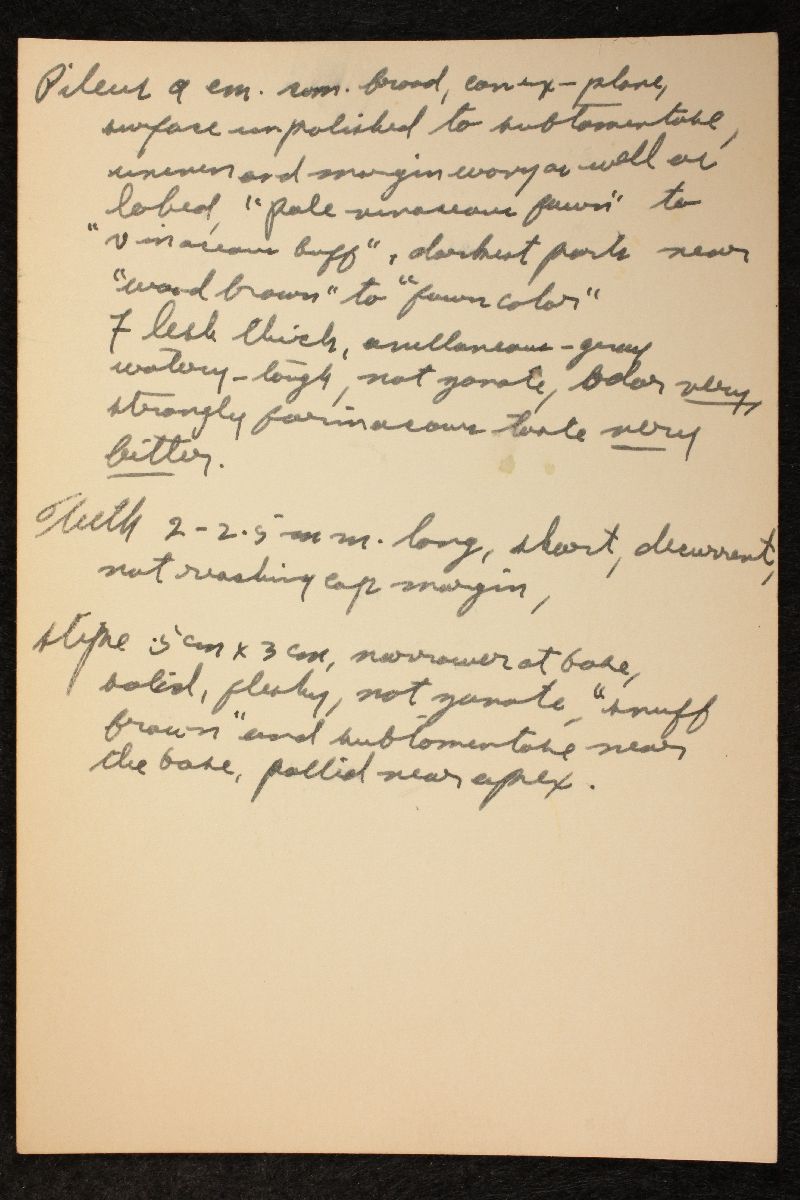 Pileus 9 cm. broad, convex-plane,
surface unpolished to subtomentose,
uneven and margin wavy as well as
lobed, "pale vinaceous fawn" to
"vinaceous buff", darkest parts near
"wood brown" to "fawn color"
Flesh thick, avellaneous-gray
watery-tough, not zonate, odor very
strongly farinaceous taste very
bitter.
Teeth 2-2.5 mm. long, short, decurrent,
not reaching cap margin,
stipe .5 cm x 3 cm, narrower at base,
solid, fleshy, not zonate, "snuff
brown" and subtomentose near
the base, pallid near apex.